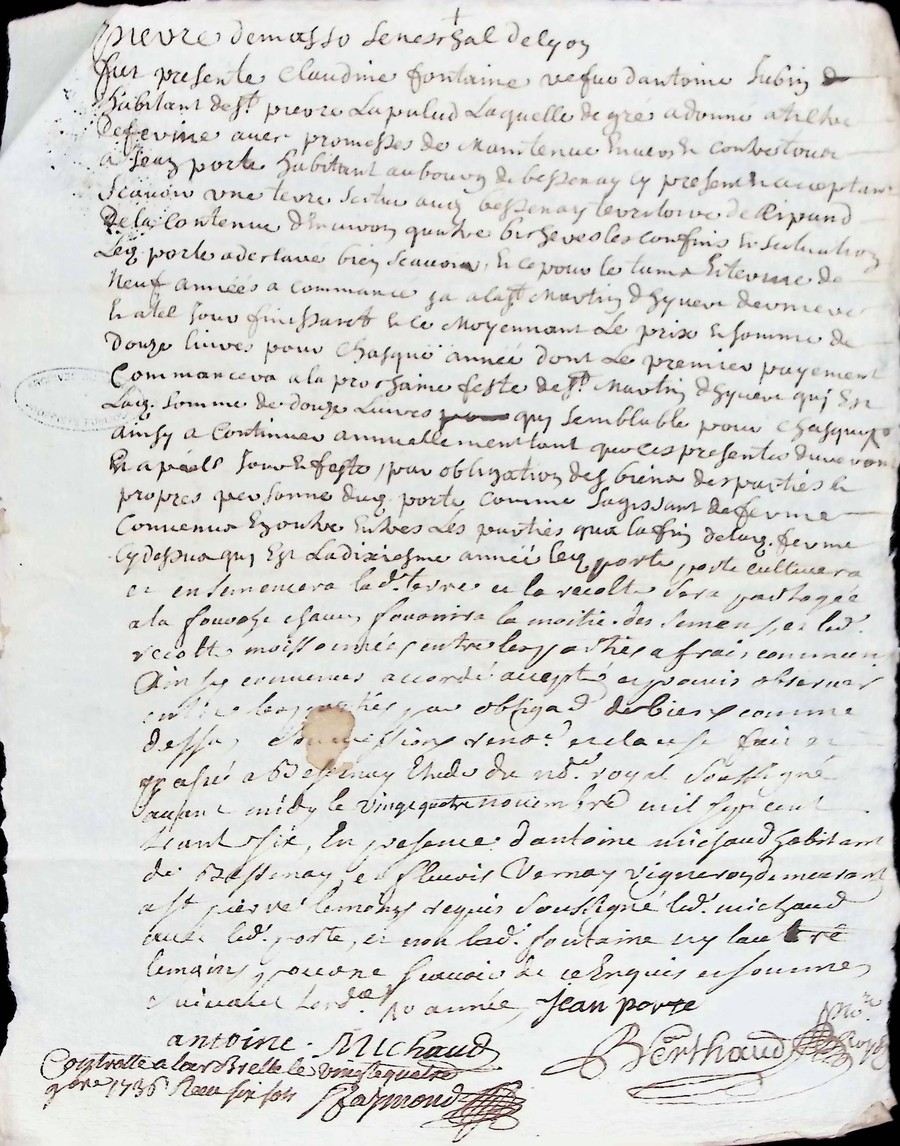 pierre demasso seneschal delyon
fut presente Claudine fontaine vefue dantoine Subin
habitant de st pierre Lapalud Laquelle de gré a donne atiltre
deferme avec promesses de Maintenue Envers Et contre tous
a Jean porte habitant aubourg de bessenay cy present Et acceptant
Scauoir une terre scitue aud bessenay territoire de Ripand
de la contenue dEnuiron quatre bicheres les confins Et scituation
Led porte a declaré bien scauoir, Et ce pour le tams Et terme de
Neuf années a commancé ja a la st Martin dhyuert dernier
Et atel jour finissant Et ce Moyennant Le prix Et somme de
Douze liures pour chasque année dont Le premier payement
Commancera a la prochaine feste de st Martin dhyuert qui Est
Lad somme de douze Liures qui semblable pour chasque
ainsy a continuer annuellement tant que ces presentes dureront
Et a pareil Jour Et feste, par obligation des biens des parties Et
propres personne dud porte comme sagissant deferme
Conuenue Ezoutre Entres Les parties qua la fin de lad. ferme
Cy dessus qui Est La dixiesme année led porte, porte cultiuera
et ensemencera lad. terre et la recolte sera partagée
a la chacun fournira la moitie des semens, et lad.
recolte moissonnées entre les parties a frais commun
Ainsy conuenus accordé accepté et promis obseruer
entre les parties, par obligaon de biens comme
dessus, renon. et clause fait et
passé a Bessenay Etude du no.re royal soussigné
auant midy le vingtquatre nouembre mil sept cent
trant six, En presence dantoine michaud habitant
de Bessenay, et fleuris Vernay vigneron demeurant
a st pierre requis soussigné led. michaud
auec led. porte, et non lad. fontaine ny lautre
temoins, pour ne scauoir de ce Enquis et sommes
suiuant Lord.ce année Jean porte
antoine Michaud
Berthaud no.re royal
Controlle a larbrelle le vingtquatre
9bre 1736 Reçu six sols Raymond